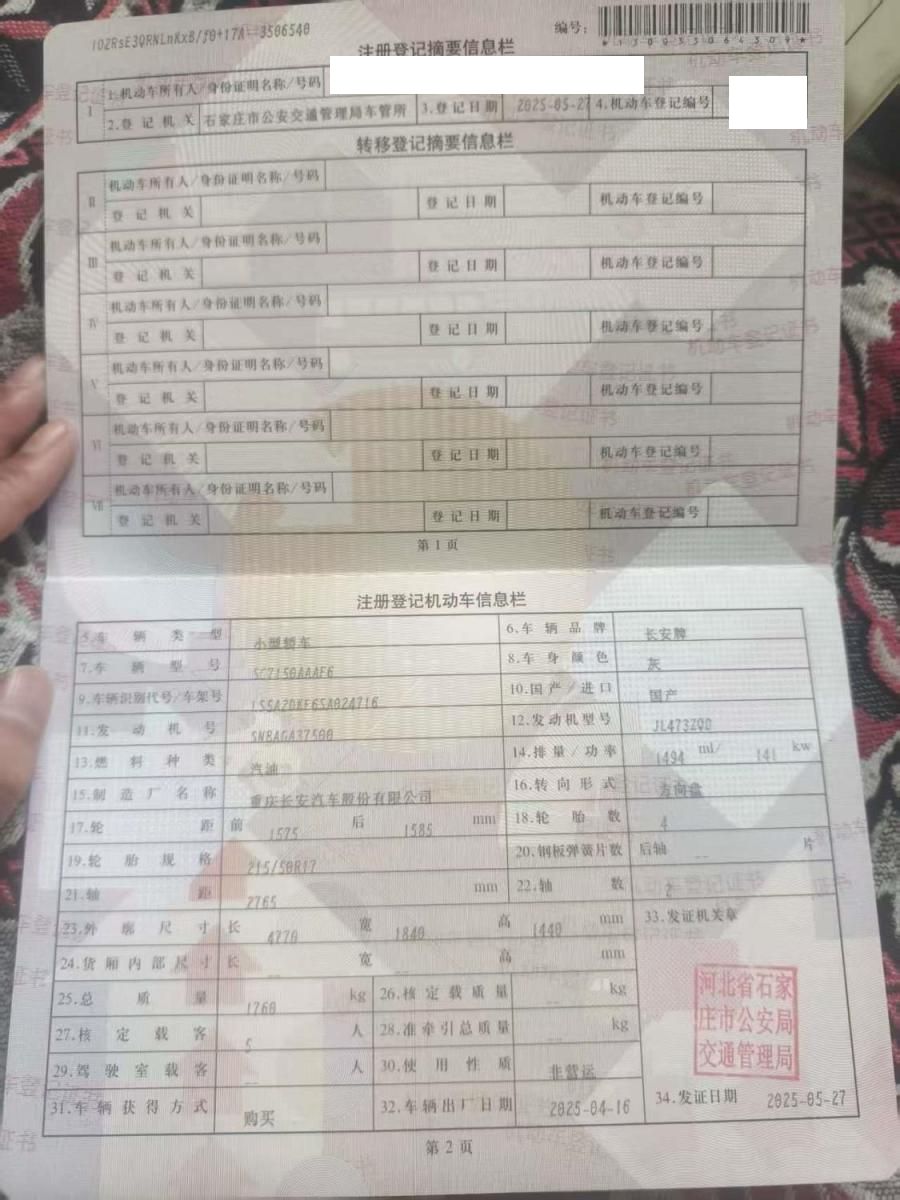 编号:
*130033064309*
注册登记摘要信息栏
I
1.机动车所有人/身份证明名称/号码
2.登记机关 石家庄市公安交通管理局车管所 3.登记日期 2025-05-27 4.机动车登记编号
转移登记摘要信息栏
II
机动车所有人/身份证明名称/号码
登记机关 登记日期 机动车登记编号
III
机动车所有人/身份证明名称/号码
登记机关 登记日期 机动车登记编号
IV
机动车所有人/身份证明名称/号码
登记机关 登记日期 机动车登记编号
V
机动车所有人/身份证明名称/号码
登记机关 登记日期 机动车登记编号
VI
机动车所有人/身份证明名称/号码
登记机关 登记日期 机动车登记编号
VII
机动车所有人/身份证明名称/号码
登记机关 登记日期 机动车登记编号
第1页
注册登记机动车信息栏
5.车辆类型 小型轿车 6.车辆品牌 长安牌
7.车辆型号 SC7150AAAE6 8.车身颜色 灰
9.车辆识别代号/车架号 LS5A2DKE6SA024716 10.国产/进口 国产
11.发动机号 SNBAGA37500 12.发动机型号 JL473ZQD
13.燃料种类 汽油 14.排量/功率 1494 ml/ 141 kw
15.制造厂名称 重庆长安汽车股份有限公司 16.转向形式 方向盘
17.轮距 前 1575 后 1585 mm 18.轮胎数 4
19.轮胎规格 215/50R17 20.钢板弹簧片数 后轴 -- 片
21.轴距 2765 mm 22.轴数 2
23.外廓尺寸 长 4770 宽 1840 高 1440 mm 33.发证机关章
24.货厢内部尺寸 长 -- 宽 -- 高 -- mm
25.总质量 1760 kg 26.核定载质量 -- kg
27.核定载客 5 人 28.准牵引总质量 -- kg
29.驾驶室载客 -- 人 30.使用性质 非营运
31.车辆获得方式 购买 32.车辆出厂日期 2025-04-16 34.发证日期 2025-05-27
河北省石家
庄市公安局
交通管理局
第2页